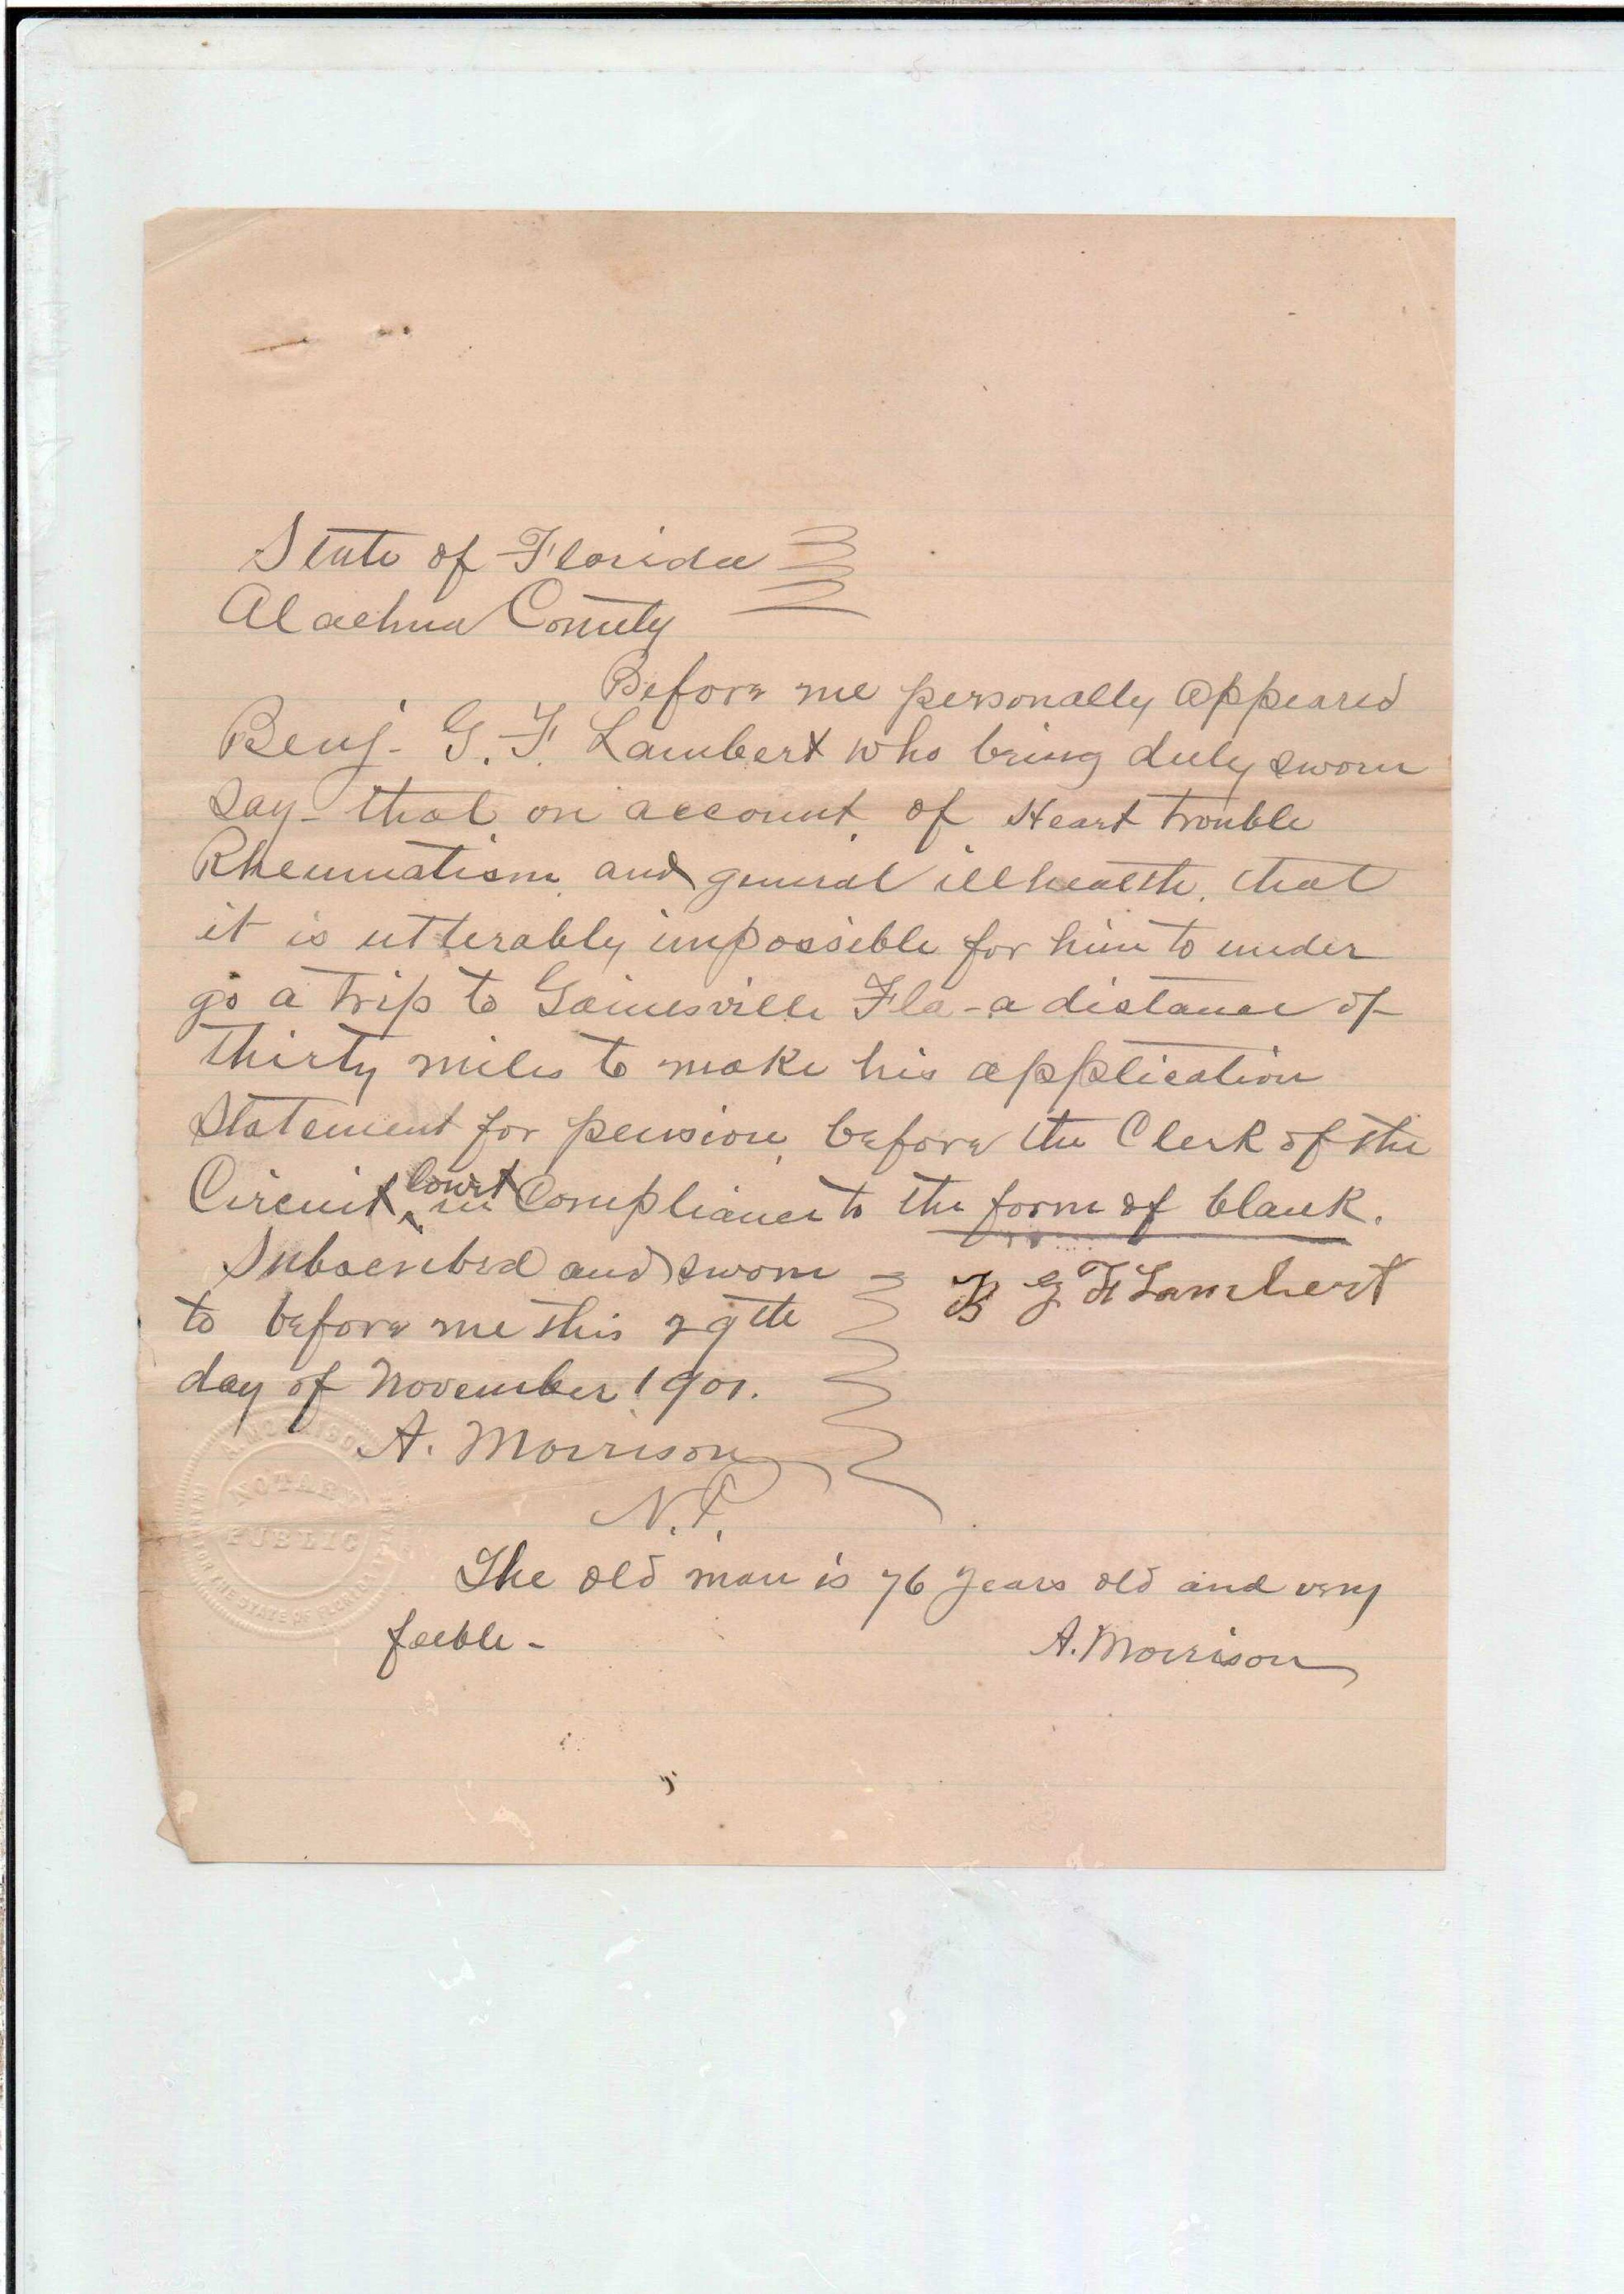 State of Florida
Alachua County
Before me personally appeared
Benj. G. F. Lambert who being duly sworn
say - that on account of Heart trouble
Rheumatism and general illhealth, that
it is utterably impossible for him to under
go a trip to Gainesville Fla - a distance of
thirty miles to make his application
Statement for pension, before the Clerk of the
Circuit Court in Compliance to the form of blank.
Subscribed and sworn
to before me this 29th
day of November 1901.
B G F Lambert
A. Morrison
N.P.
NOTARY
PUBLIC
FOR THE STATE OF FLORIDA
The old man is 76 years old and very
feeble -
A. Morrison